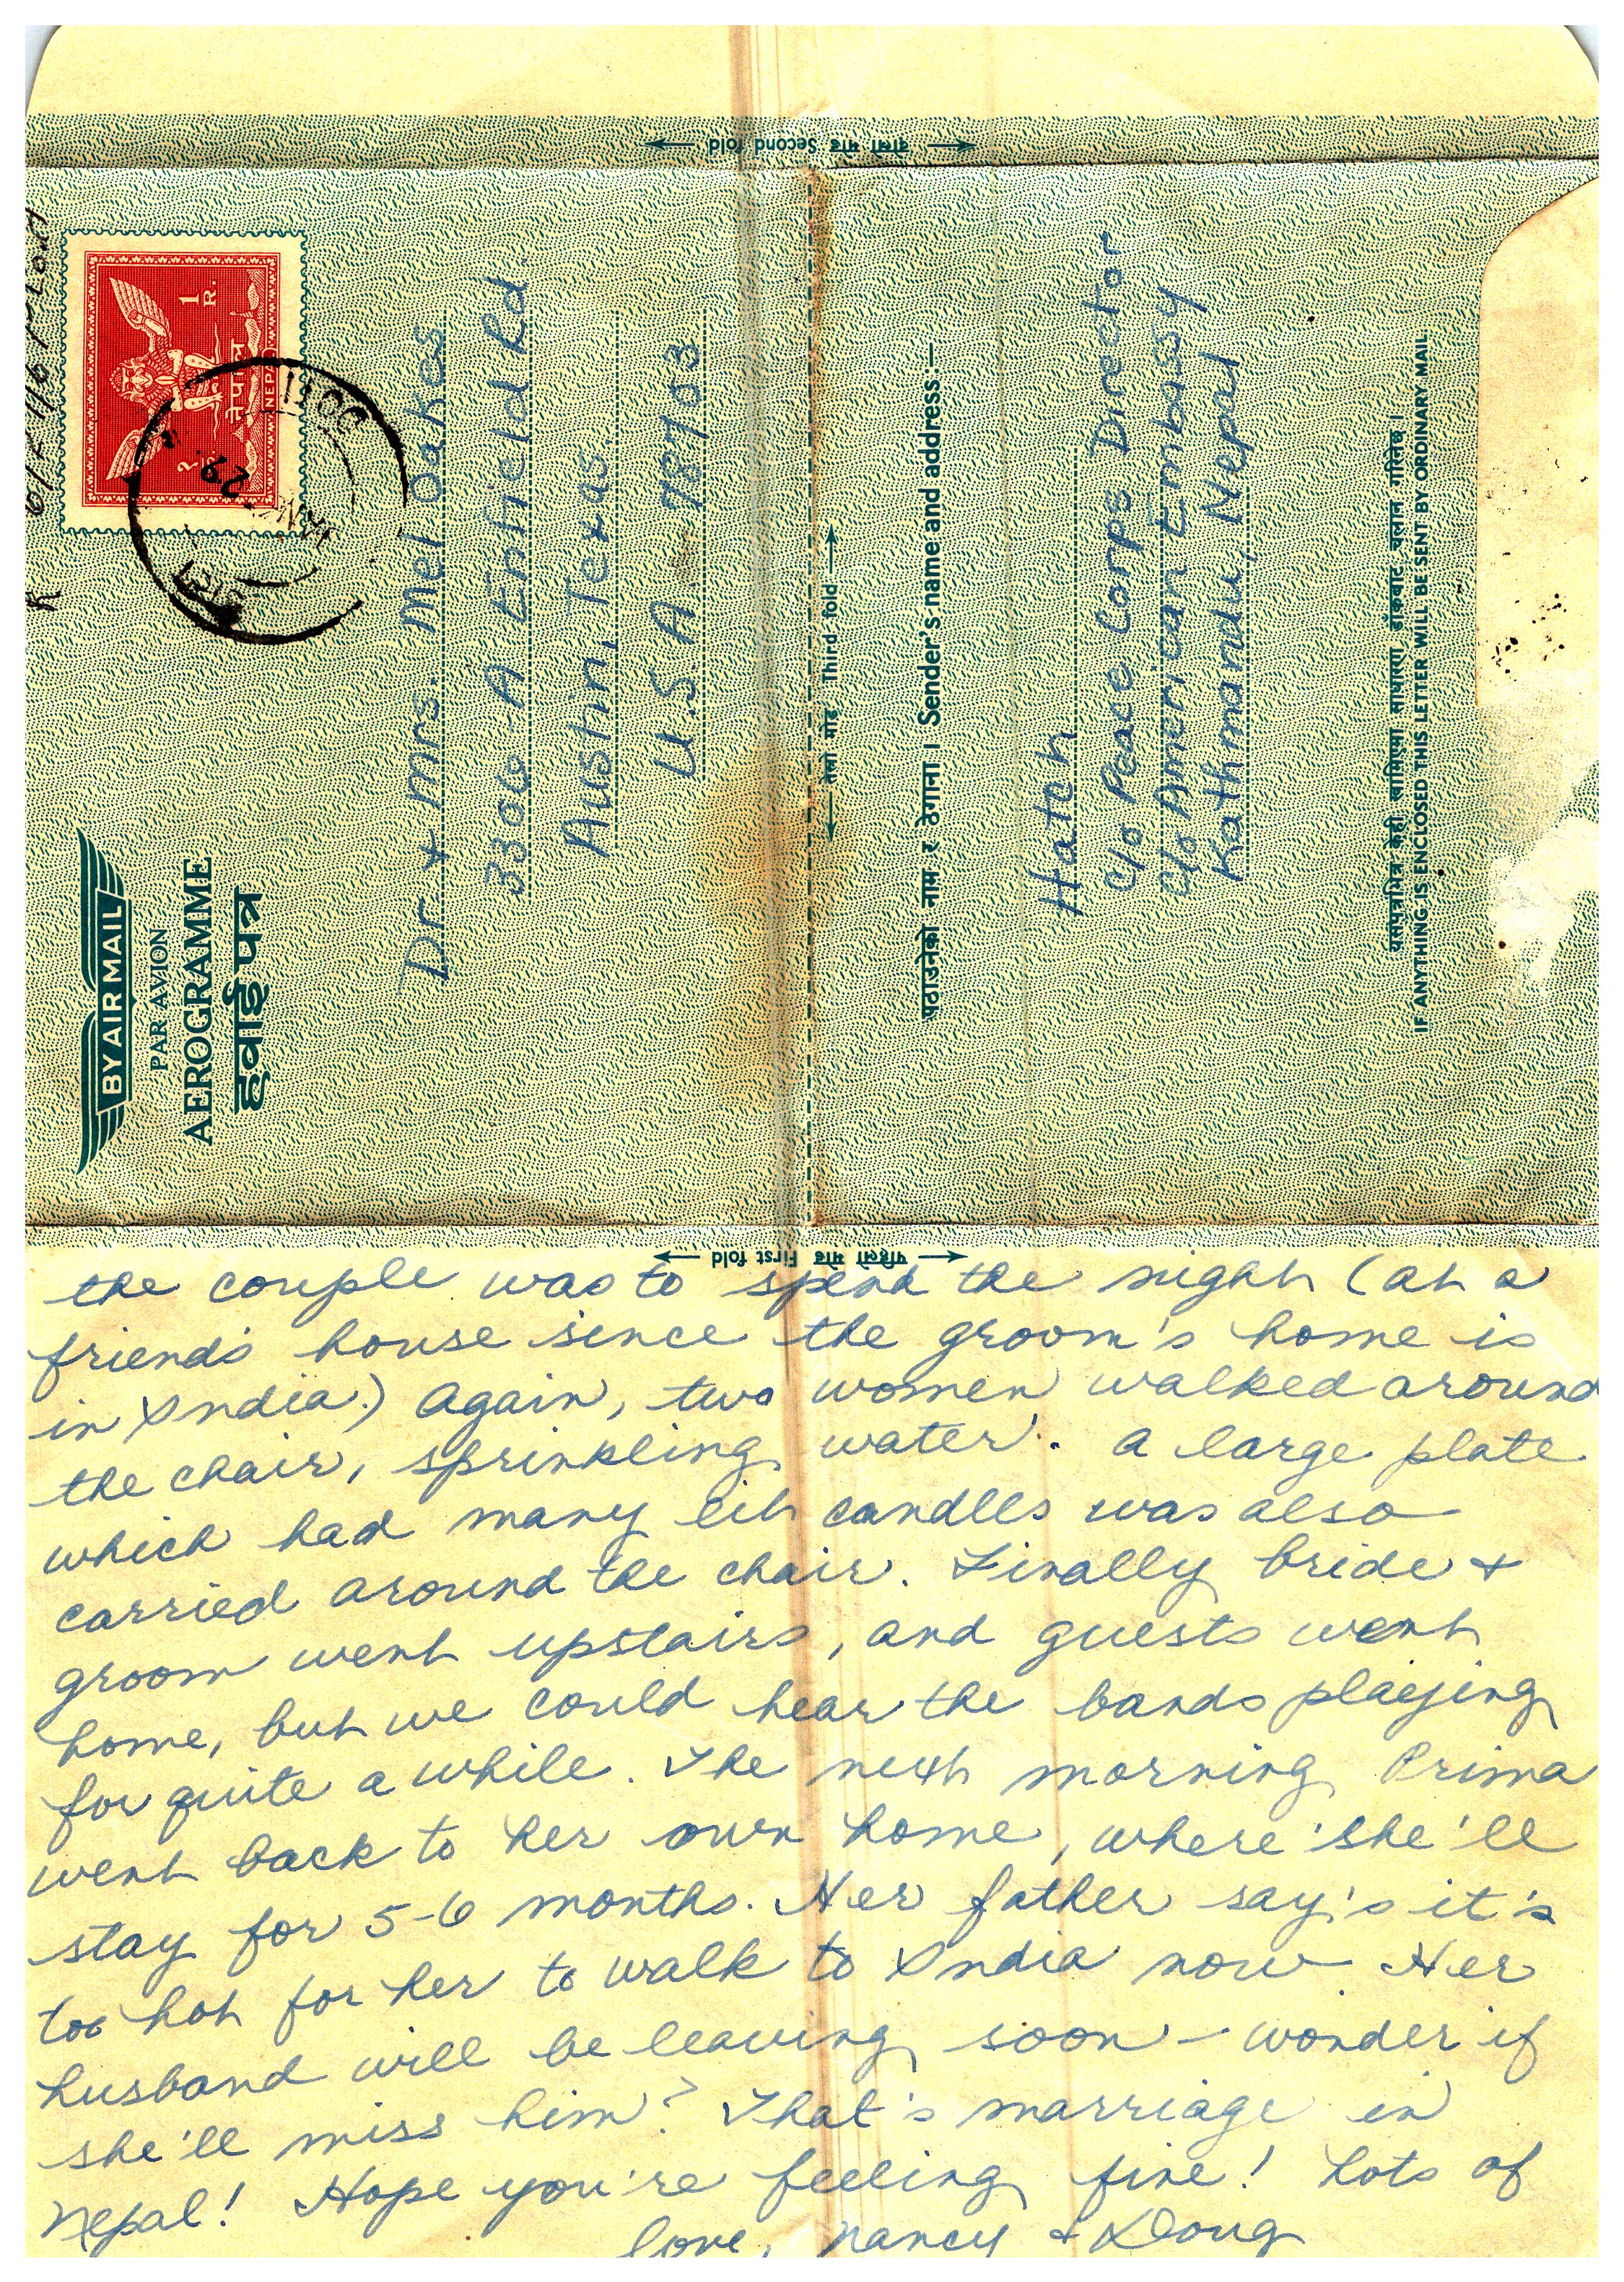 दोस्रो मोड Second fold
BY AIR MAIL
PAR AVION
AEROGRAMME
हवाई पत्र
नेपाल
NEPAL
1 R.
DOTI
29
Dr. + Mrs. Mel Oakes
3306-A Enfield Rd.
Austin, Texas
U.S.A. 78703
तेस्रो मोड Third fold
पठाउनेको नाम र ठेगाना । Sender's name and address:—
Hatch
c/o Peace Corps Director
c/o American Embassy
Kathmandu, Nepal
यसपत्रभित्र केही राखिएमा साधारण डाँकबाट चलान गरिनेछ ।
IF ANYTHING IS ENCLOSED THIS LETTER WILL BE SENT BY ORDINARY MAIL
पहिलो मोड First fold
the couple was to spend the night (at a
friend's house since the groom's home is
in India.) Again, two women walked around
the chair, sprinkling water. A large plate
which had many lit candles was also
carried around the chair. Finally bride +
groom went upstairs, and guests went
home, but we could hear the bands playing
for quite a while. The next morning Prima
went back to her own home, where she'll
stay for 5-6 months. Her father say's it's
too hot for her to walk to India now. Her
husband will be leaving soon - wonder if
she'll miss him? That's marriage in
Nepal! Hope you're feeling fine! Lots of
love, Nancy + Doug